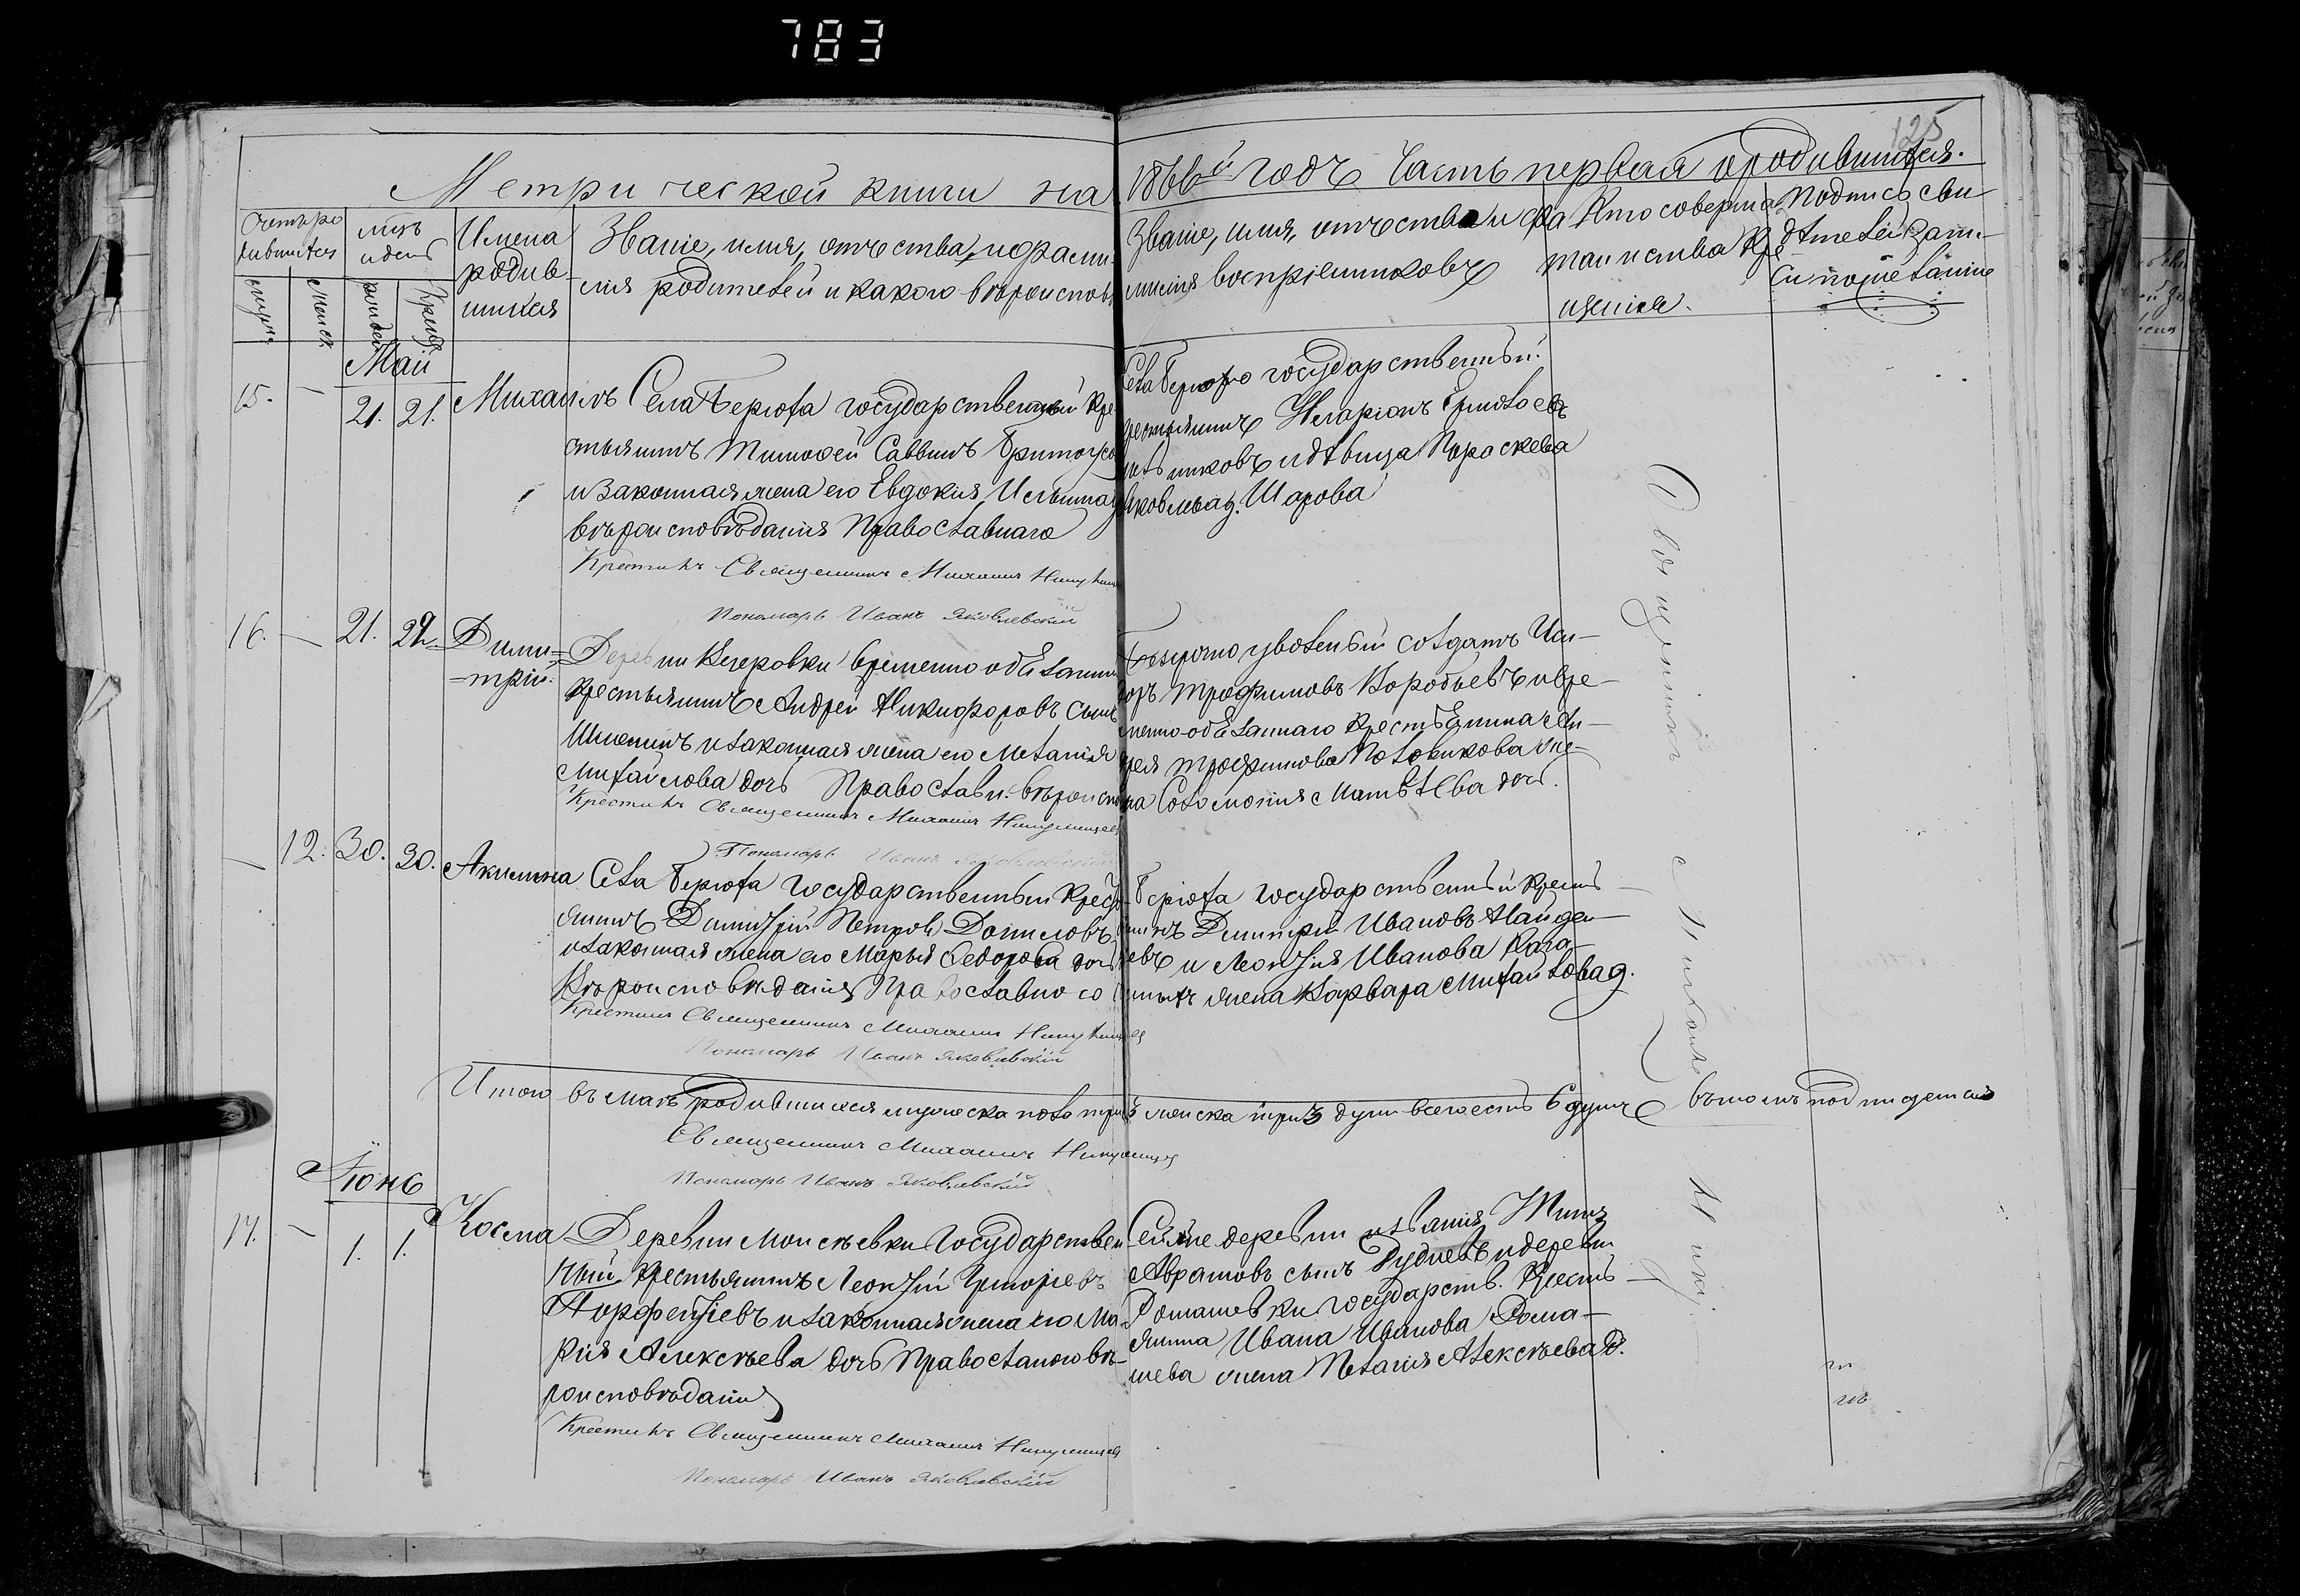 783
125
Метрической книги на 1866й годъ Часть первая о родившихся.
Счетъ ро
дившихся
мсцъ
и день
Имена
родив
шихся
Званіе, имя, отчества, и фами
лія родителей и какого вѣроиспов
Званіе, имя, отчества и фа
милія воспріемниковъ
Кто соверша
таинства кре
щенія.
Подпись сви
дѣтелей запи
си по желанію
Май
15. — 21. 21. Михаилъ
Села Берюха государственный кре
стьянинъ Тимоѳей Саввинъ
и законная жена его Евдокія
вѣроисповѣданія Православнаго
Крестилъ Священникъ Михаилъ
Пономарь Иванъ Яковлевскій
Села Берюхо государственный
крестьянинъ Иларіонъ Ермолаевъ
и дѣвица Пораскева
Яковлева д. Шарова
16. — 21. 22. Дими
трій.
Деревни временно обязанный
крестьянинъ Андрей Никифоровъ сынъ
и законная жена его Меланія
Михайлова дочь Православн. вѣроиспо
Крестилъ Священникъ Михаилъ
Пономарь Иванъ Яковлевскій
Безсрочно уволеный солдатъ
Трофимовъ Воробьевъ и вре
менно-обязаннаго крестьянина Ан
дрея Трофимова Половикова же
на Соломонія Матвѣева дочь.
— 12. 30. 30. Акилина
Села Берюха государственный крест
янинъ Димитрій Петровъ Даниловъ
и законная жена его Марья Федорова дочь
Вѣроисповѣданія Православного
Крестилъ Священникъ Михаилъ
Пономарь Иванъ Яковлевскій
Берюха государственный крестъ
янинъ Дмитрій Ивановъ Найде
евъ и Леонтія Иванова
жена Варвара Михайлова д.
Итого въ маѣ родившихся мужеска пола три 3 женска три 3 души всего есть 6 душъ въ томъ подписуемся
Священникъ Михаилъ
Пономарь Иванъ Яковлевскій
Священникъ Михаилъ
Іюнь
17. — 1. 1. Косма
Деревни Моисѣевки Государствен
ный крестьянинъ Леонтій Григорьевъ
Парфентіевъ и законная жена его Ма
рія Алексѣева дочь Православного вѣ
роисповѣданія
Крестилъ Священникъ Михаилъ
Пономарь Иванъ Яковлевскій
Сей же деревни званія
Аврамовъ сынъ Рудневъ и деревни
Ромашевки государств. крестъ
янина Ивана Иванова Рома
шева жена Пелагія Алексѣева д.